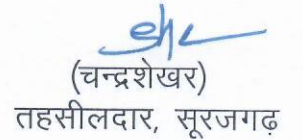 (चन्द्रशेखर)
तहसीलदार, सूरजगढ़